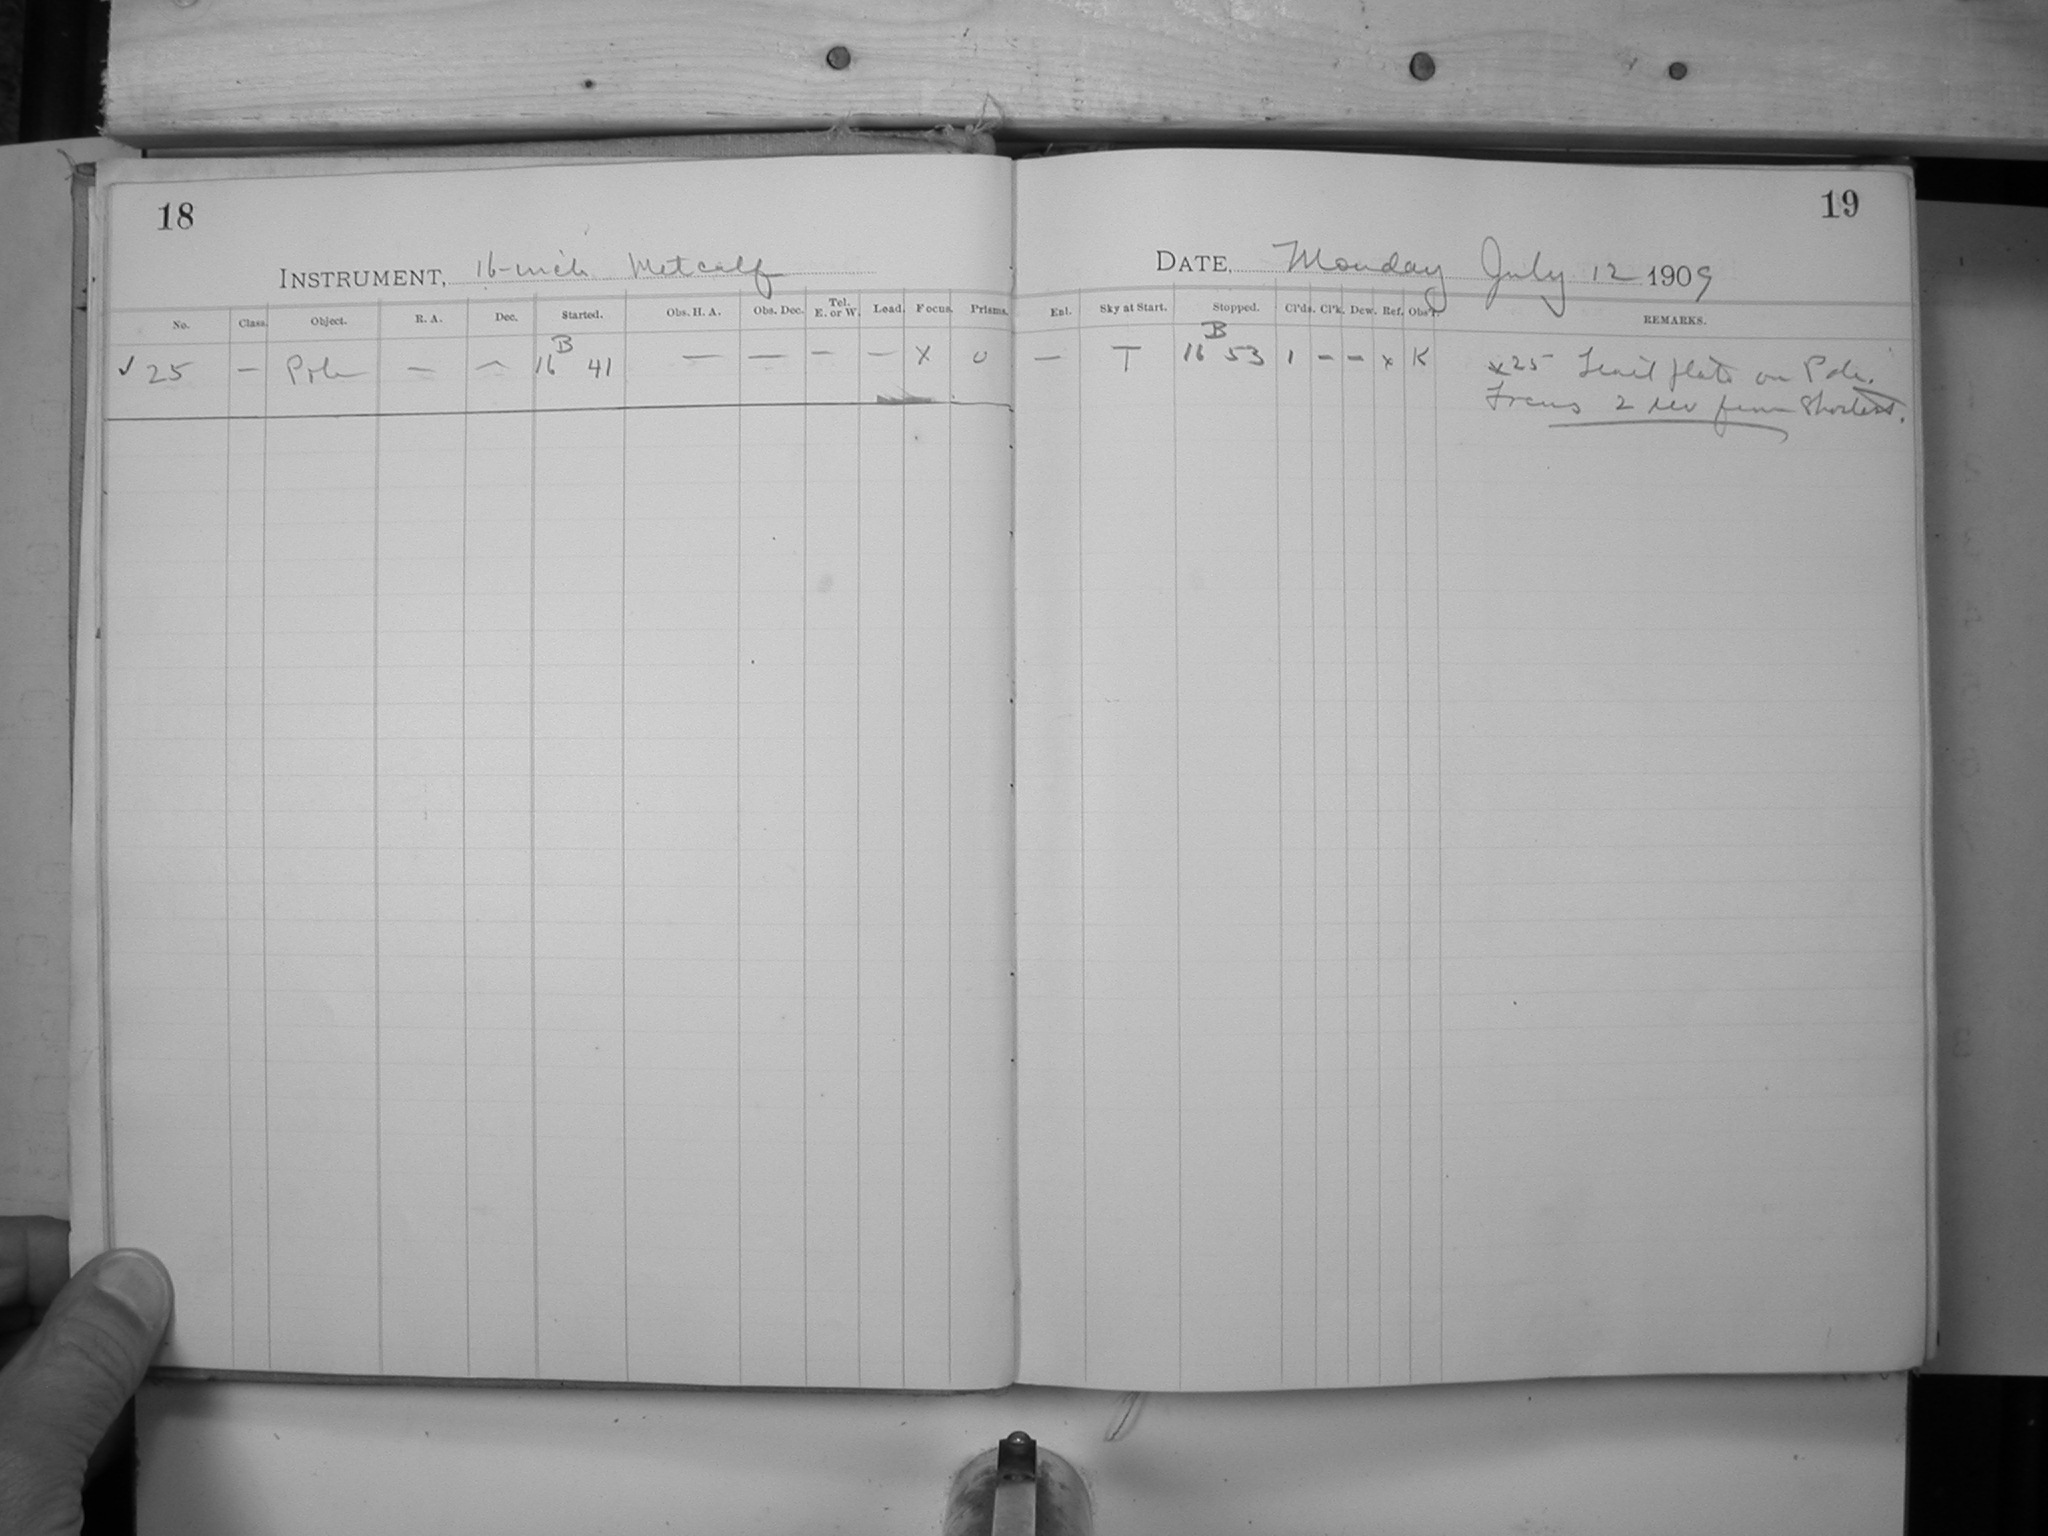 18
19
INSTRUMENT, 16-inch Metcalf
DATE, Monday July 12 1909
No. Class. Object. R. A. Dec. Started. Obs. H. A. Obs. Dec. Tel. E. or W. Load. Focus. Prisms. Enl. Sky at Start. Stopped. Cl'ds. Cl'k. Dew. Ref. Obs'r. REMARKS.
B B
✓ 25 — Pole — — 16 41 — — — — x 0 — T 16 53 1 - - x K x25 Trail plate on Pole.
Focus 2 rev from Shortest.